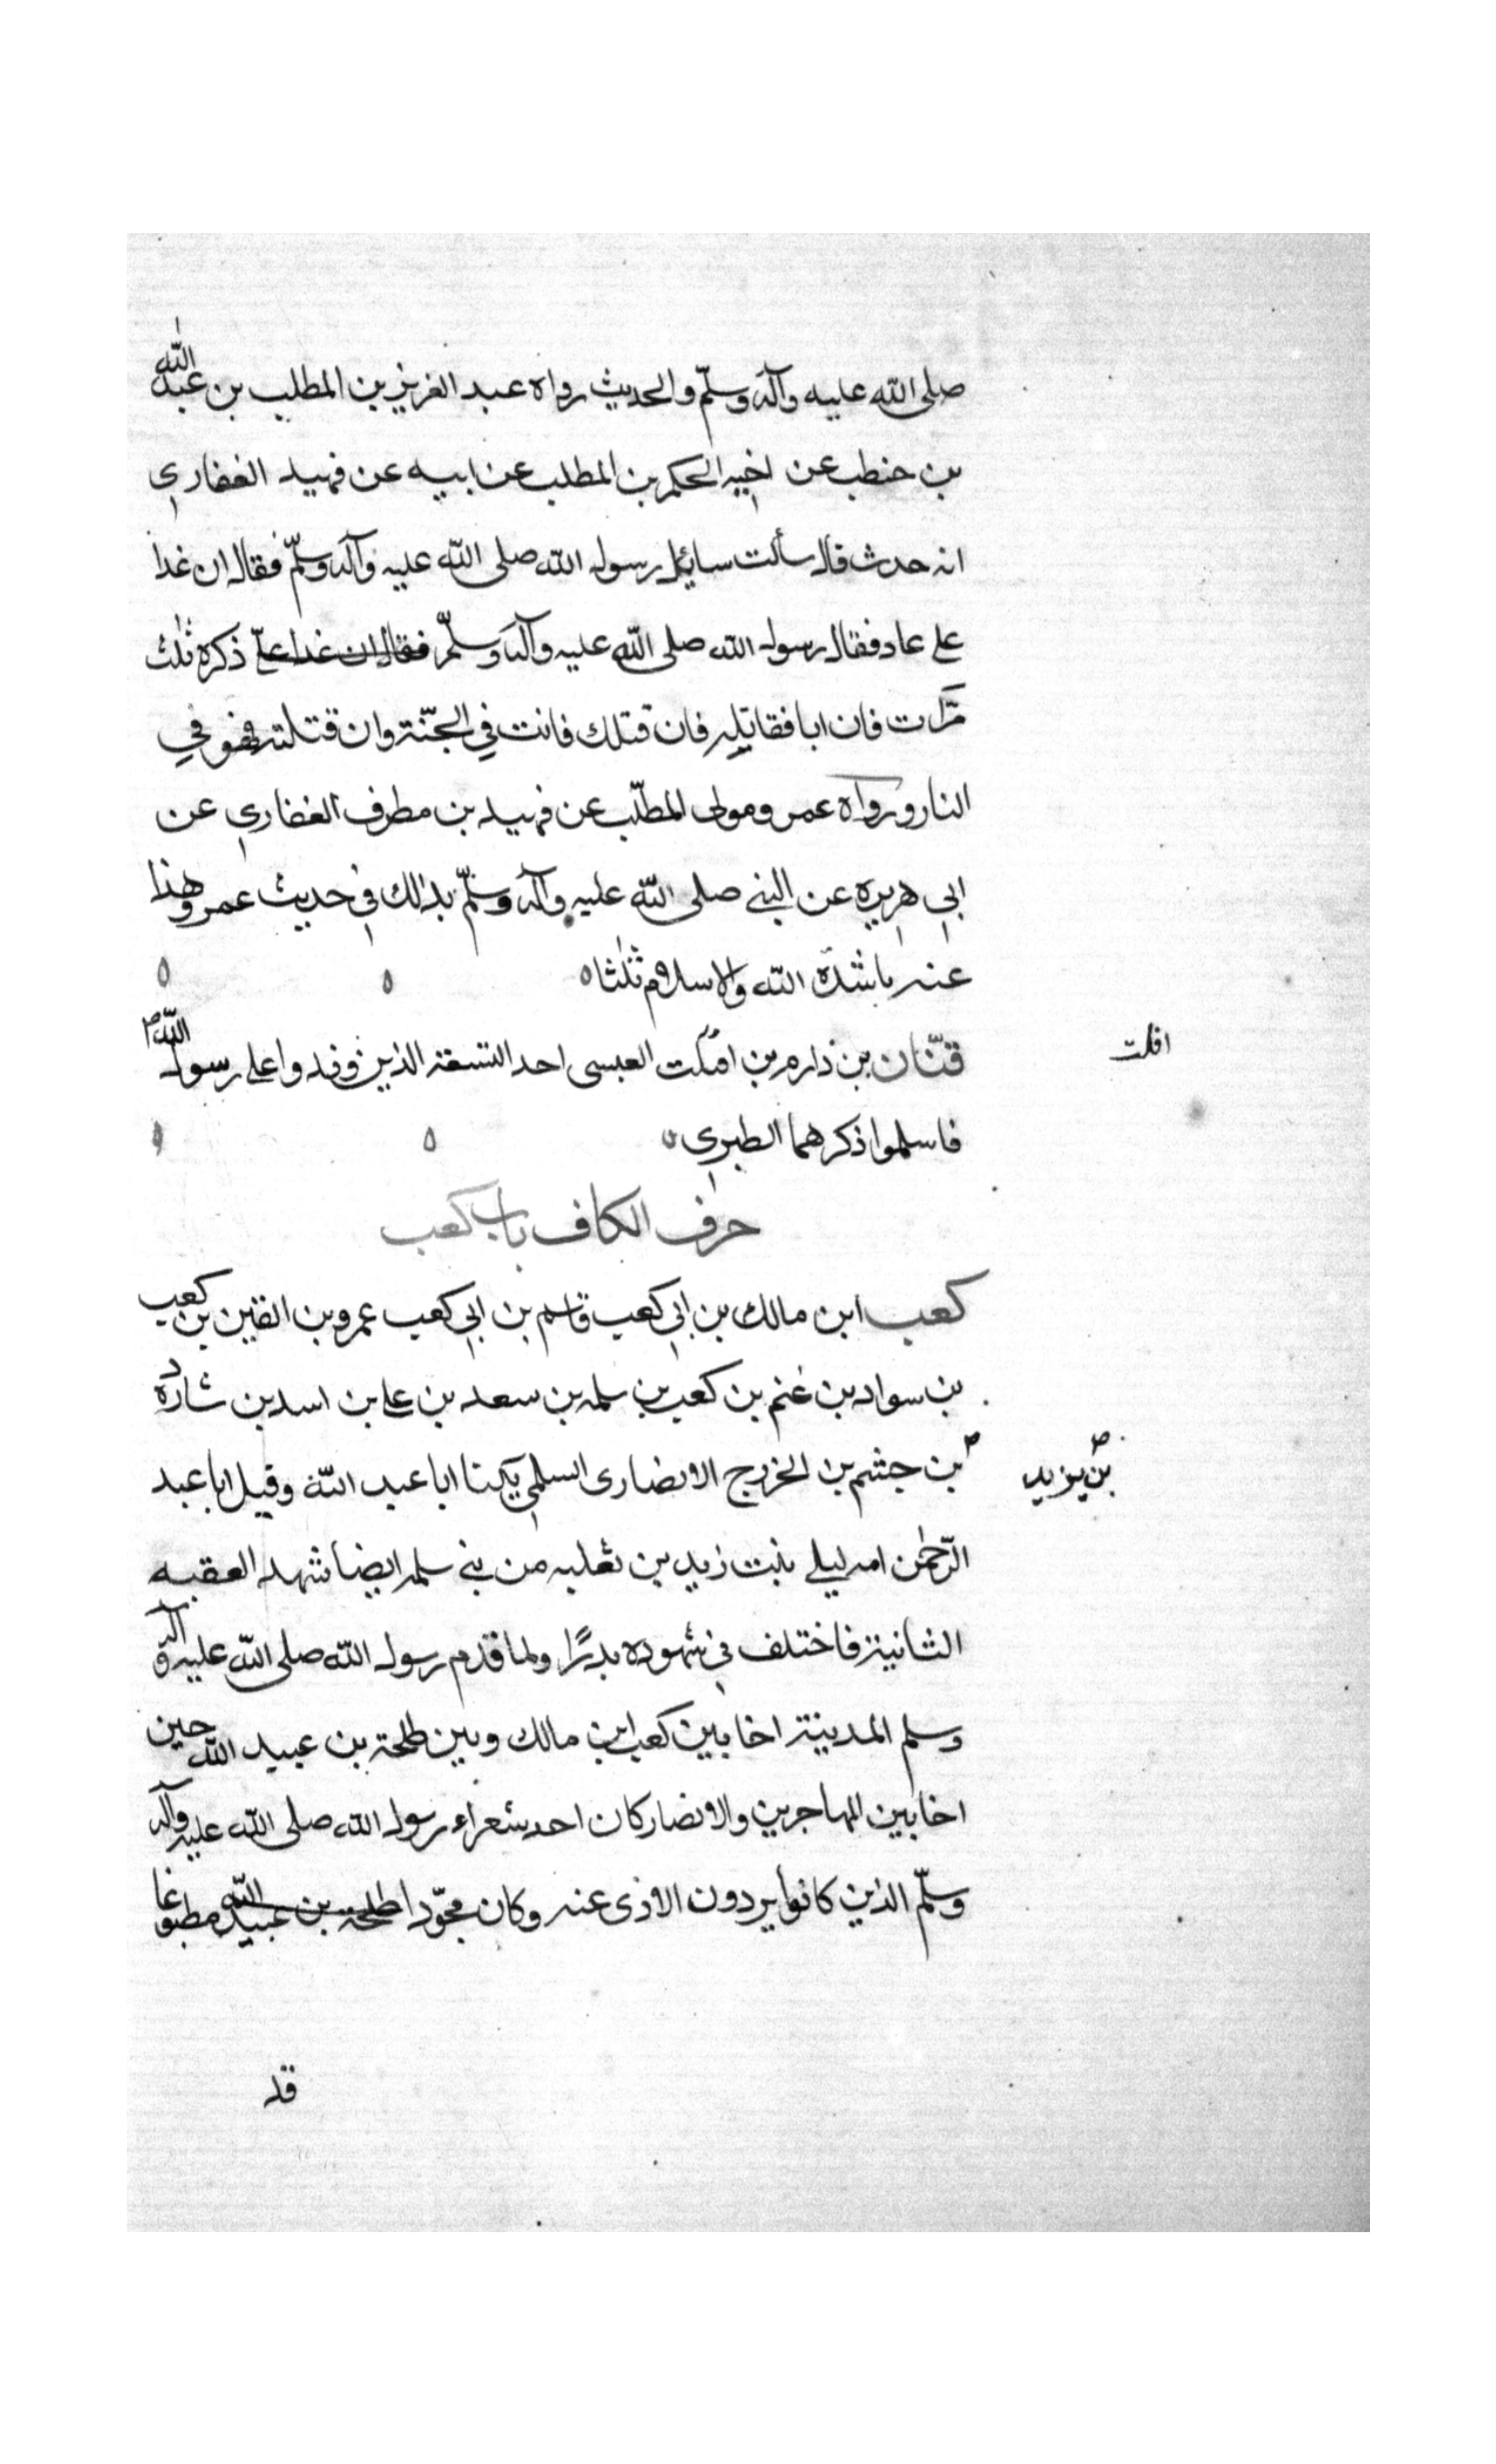 صلى الله عليه وآله وسلّم والحديث رواه عبد العزيز بن المطلب بن عبد الله
بن حنطب عن اخيه الحكم بن المطلب عن ابيه عن قهيد الغفاري
انه حدث قال سألت سايل رسول الله صلى الله عليه وآله وسلّم فقال ان غدا
على عاد فقال رسول الله صلى الله عليه وآله وسلّم فقال ان غدا على ذكره ثلث
مرّات فان ابا فقاتله فان قتلك فانت في الجنّة وان قتلته فهو في
النار ورواه عمر ومولى المطلّب عن قهيد بن مطرف الغفاري عن
ابي هريره عن النبي صلى الله عليه وآله وسلّم بذلك في حديث عمرو هذا
عنه ناشدة الله والاسلام ثلثا ٥
قنّان بن دارم بن افلت العبسى احد التسعة الذين وفدوا على رسول الله ص
افلت
فاسلموا ذكرهما الطبري
حرف الكاف باب كعب
كعب ابن مالك بن ابي كعب قاسم بن ابي كعب عمرو بن القين بن كعب
بن سواد بن غنم بن كعب بن سلمه بن سعد بن علي بن اسد بن شاردة
بن جشم بن الخزرج الانصارى السلمي يكنا ابا عبد الله وقيل ابا عبد
بن يزيد
الرّحمٰن امه ليلى بنت زيد بن ثعلبه من بني سلمه ايضا شهد العقبه
الثانية فاختلف في شهوده بدرًا ولما قدم رسول الله صلى الله عليه وآله
وسلم المدينة اخا بين كعب ابن مالك وبين طلحة بن عبيد الله حين
اخا بين المهاجرين والانصار كان احد شعراء رسول الله صلى الله عليه وآله
وسلّم الذين كانوا يردون الاذى عنه وكان مجوّدا طلحة بن عبيد الله مطبوعا
قد